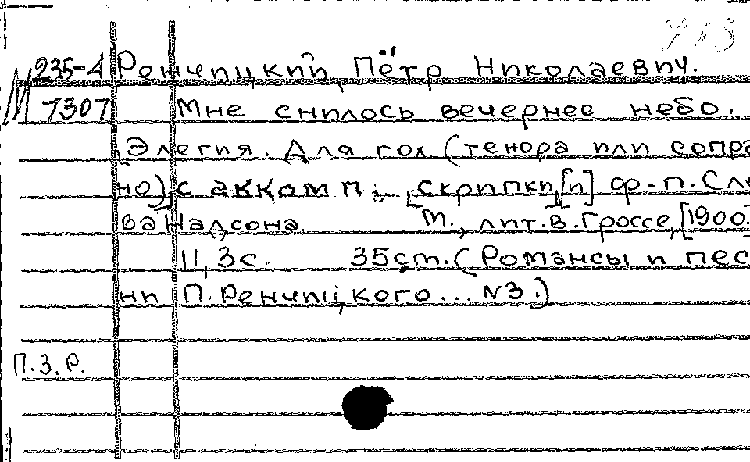 235-4 Ренчицкий, Пётр Николаевич.
М 7307 Мне снилось вечернее небо.
Элегия. Для гол. (тенора или сопра
но) с аккомп. скрипки [и] ф.-п. Сло
ва Надсона. М., лит. В. Гроссе, [1900]
11, 3с. 35см. (Романсы и пес
ни П. Ренчицкого... №3.)
П.З.Р.